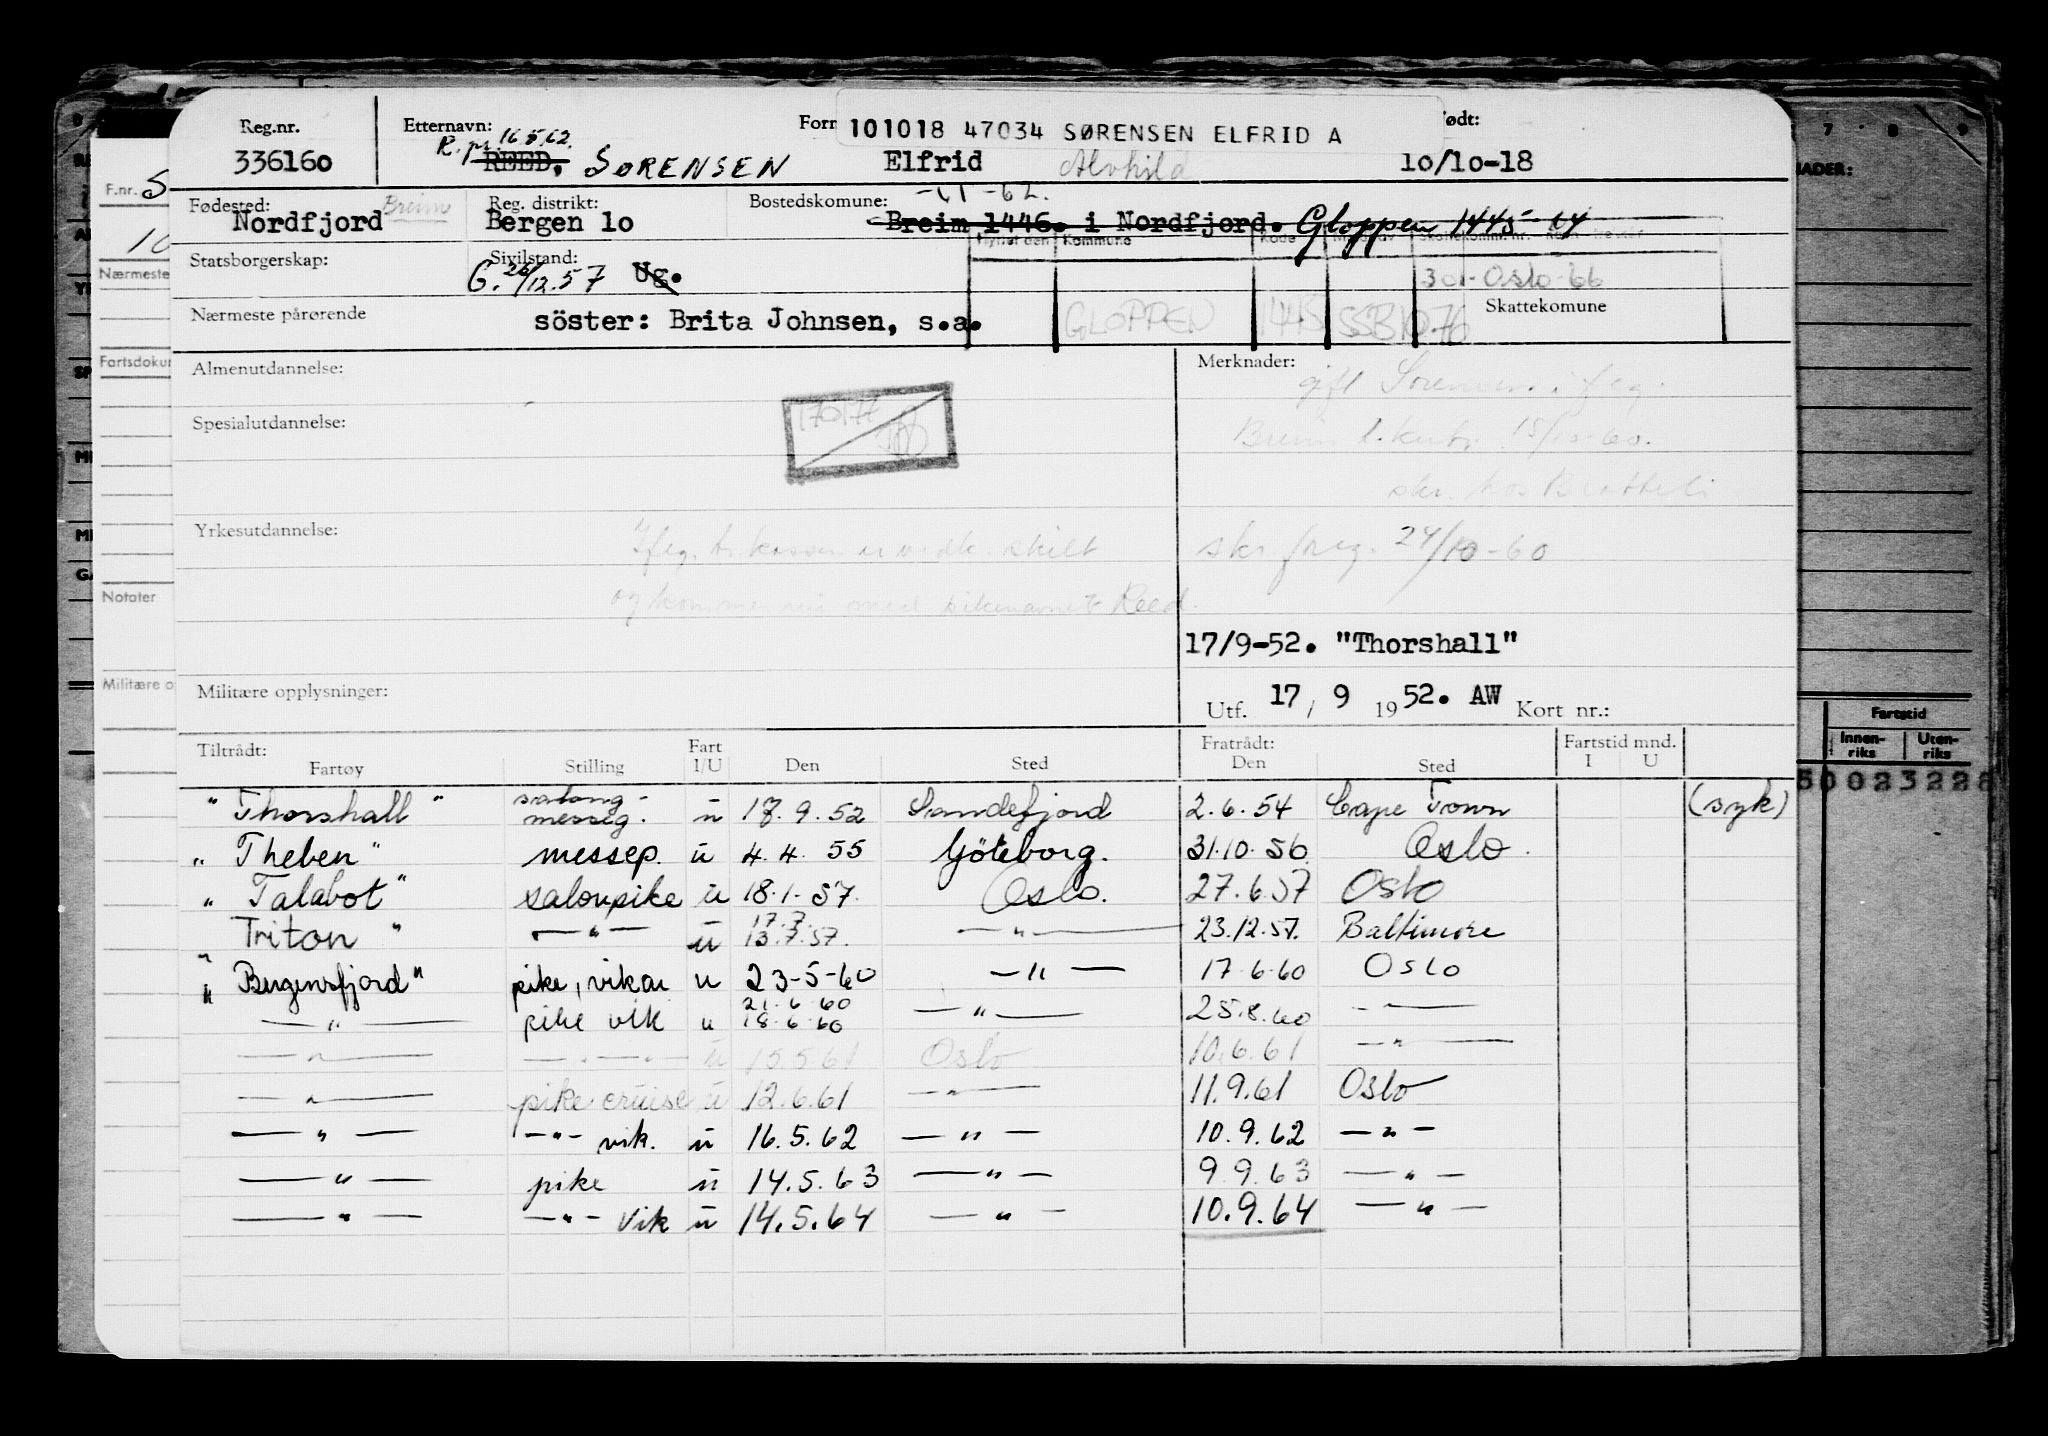 Reg.nr. Etternavn: 16.5.62. Forn 101018 47034 SØRENSEN ELFRID A født:
336160 R.pr. REED. SØRENSEN Elfrid Alvhild 10/10-18
Fødested: Breim Reg. distrikt: Bostedskomune: -11-62.
Nordfjord Bergen 10 Breim 1446. i Nordfjord. Gloppen 1445-14
Flyttet den Kommune Kode
Statsborgerskap: Sivilstand:
G. 26/12.57 Ug. 301-Oslo-66
Nærmeste pårørende söster: Brita Johnsen, s.a. GLOPPEN 1445 SSB10.76 Skattekomune
Almenutdannelse: Merknader:
gift Sørensen i flg.
Spesialutdannelse: 170177
Breim l.kont. 15/10-60.
skr. hos Bratteli
Yrkesutdannelse: Iflg. tr.kassen er vedk. skilt skr. freg. 24/10-60
og kommer inn med pikenavnet Reed.
17/9-52. "Thorshall"
Militære opplysninger: Utf. 17/ 9 1952. AW Kort nr.:
Tiltrådt: Fart Fratrådt: Fartstid mnd.
Fartøy Stilling I/U Den Sted Den Sted I U
"Thorshall" salong-messeg. u 18.9.52 Sandefjord 2.6.54 Cape Town (syk)
"Theben" messep. u 4.4.55 Göteborg. 31.10.56 Oslo.
"Talabot" salonpike u 18.1.57. Oslo. 27.6.57 Oslo
"Triton" —"— u 17.7. 13.7.57. —"— 23.12.57. Baltimore
"Bergensfjord" pike, vikar u 23-5-60 —"— 17.6.60 Oslo
—"— pike vik u 21.6.60 18.6.60 —"— 25.8.60 -"—
—"— —"—"— u 15.5.61 Oslo 10.6.61 —"—
—"— pike cruise u 12.6.61 —"— 11.9.61 Oslo
—"— —"— vik. u 16.5.62 —"— 10.9.62 —"—
—"— pike u 14.5.63 —"— 9.9.63 —"—
—"— —"— Vik u 14.5.64 —"— 10.9.64 —"—
F.nr. S
10
Nærmeste
Fartsdokum
Notater
Militære o
7 8 9
NADER:
Fartstid
Innen-riks Uten-riks
50023228